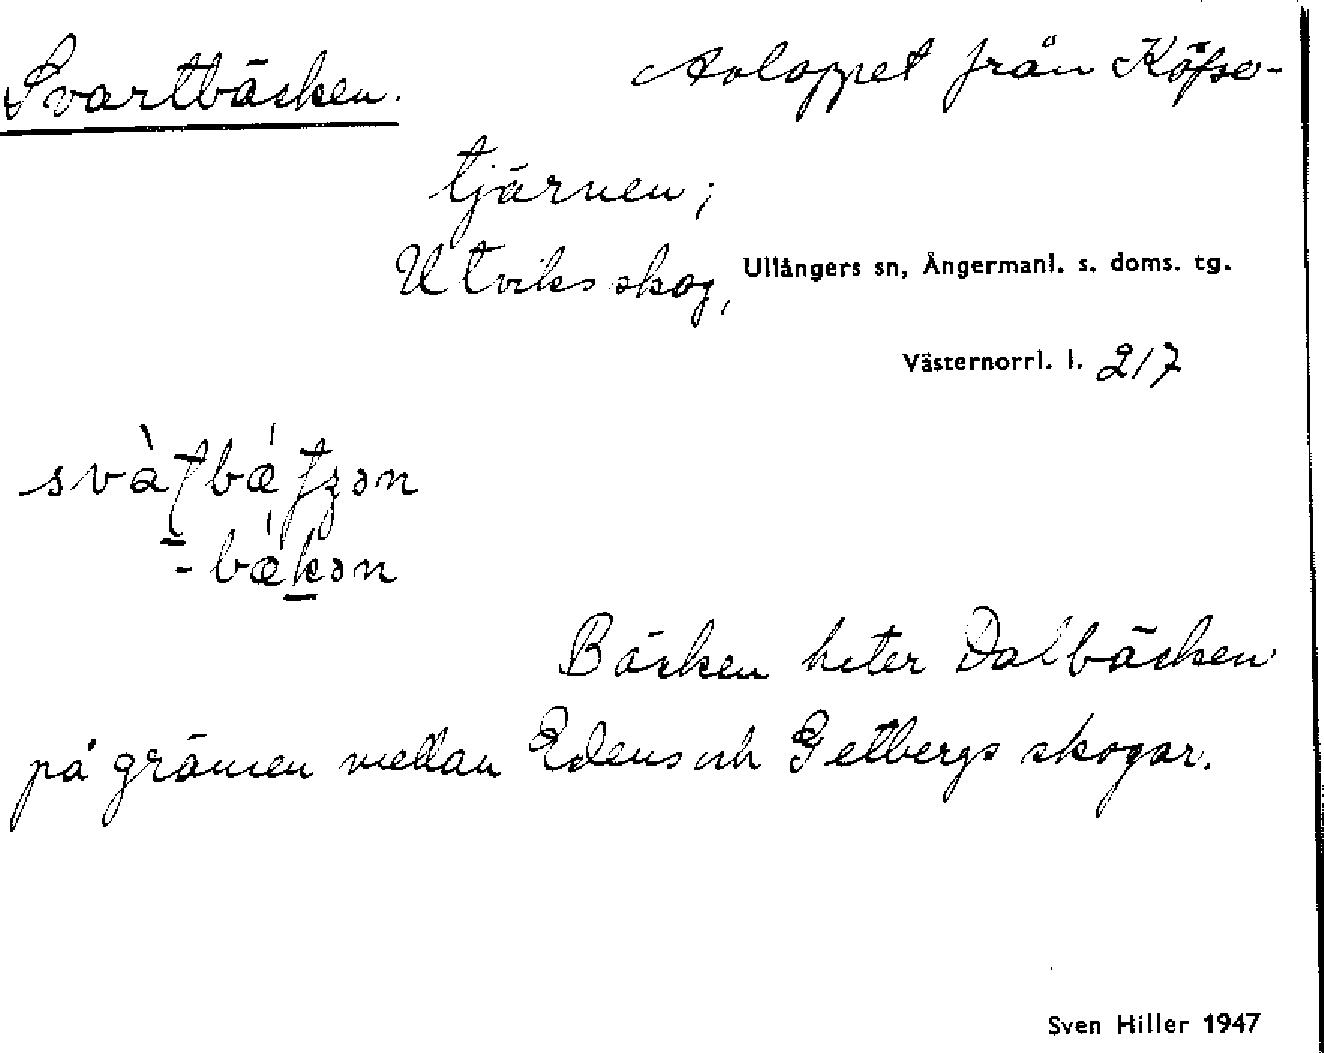 Svartbäcken. Avloppet från Köpse-
tjärnen;
Utviks skog, Ullångers sn, Ångermanl. s. doms. tg.
Västernorrl. l. 2/7
Bäcken heter Dalbäcken
på gränsen mellan Edens och Getbergs skogar.
Sven Hiller 1947